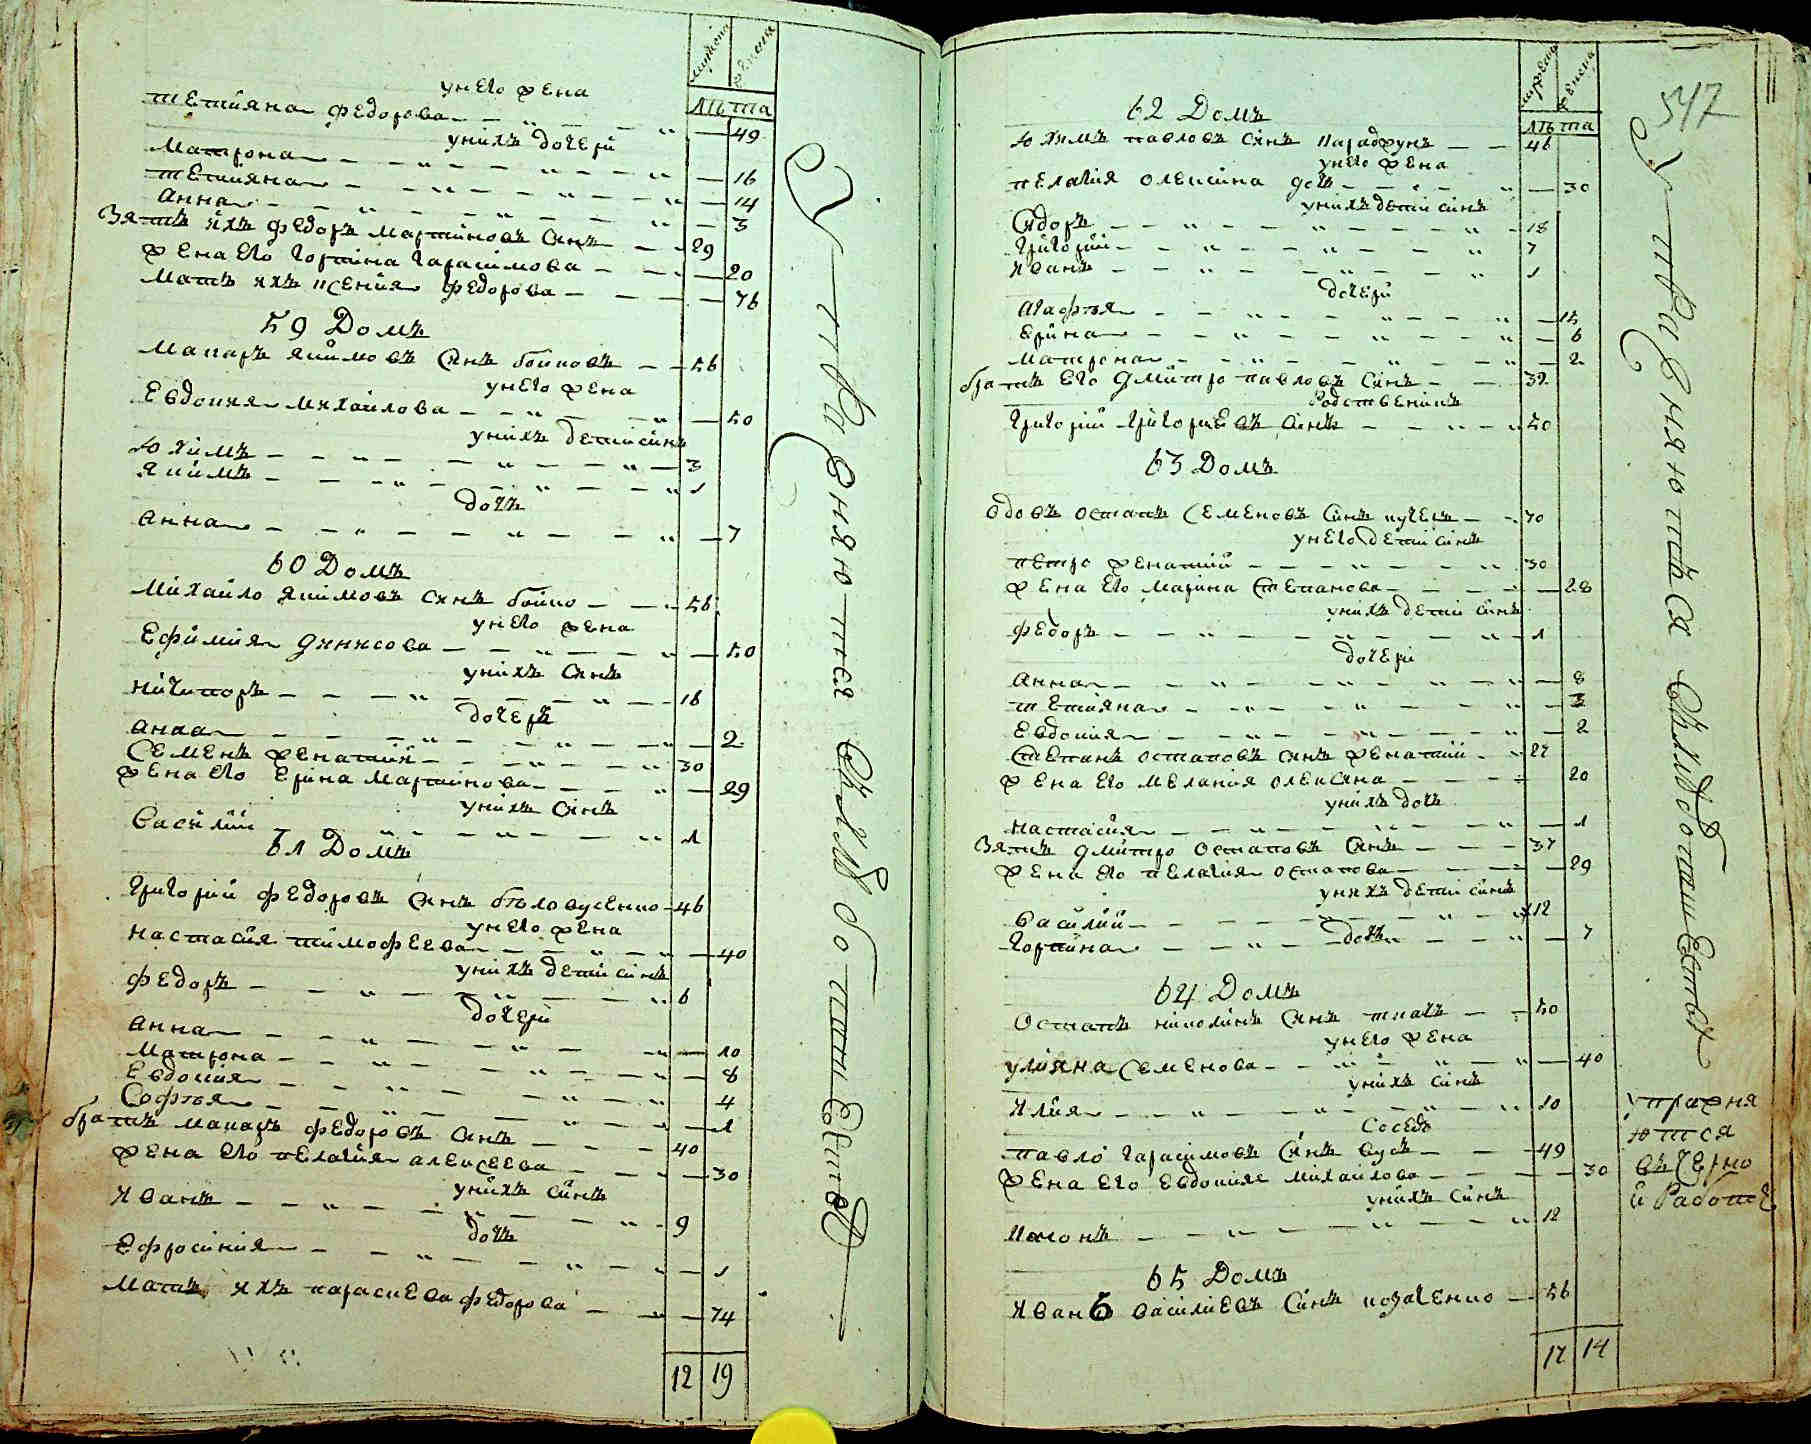 мужеска
женска
лѣта
у него жена
тетияна федорова 49
у нихъ дочери
Матрона 16
тетияна 14
Анна 3
Зять ихъ федоръ мартиновъ синъ 29
жена его горпина гарасимова 20
мать ихъ ксения федорова 76
59 Домъ
Макаръ якимовъ синъ бойковъ 56
у него жена
Евдокия михайлова 50
у нихъ дети сини
Юхимъ 3
Якимъ 1
дочь
Анна 7
60 Домъ
Михайло якимовъ синъ бойко 56
у него жена
Ефимия динисова 50
у нихъ синъ
Ничипоръ 16
дочерь
Анна 2
Семенъ женатий 30
жена его ерина мартинова 29
у нихъ синъ
Василий 1
61 Домъ
Григорий федоровъ синъ бѣлоусенко 46
у него жена
настасия тимофеева 40
у нихъ дети синъ
федоръ 6
дочери
Анна 10
Матрона 8
Евдокия 4
Софья 1
братъ макаръ федоровъ синъ 40
жена его пелагия алексеева 30
у нихъ синъ
Иванъ 9
дочь
Ефросиния 1
мать ихъ параскева федорова 74
12 19
Упражняются въ хлѣбопашествѣ
547
мужеска
женска
лѣта
62 Домъ
Юхимъ павловъ синъ 46
у него жена
пелагия олексина дочь 30
у нихъ дети сини
Сидоръ 18
Григорий 7
Иванъ 1
дочери
Агафья 15
Ерина 6
Матрона 2
братъ его дмитро павловъ синъ 32
Родственикъ
Григорий григориевъ синъ 50
63 Домъ
вдовъ остапъ семеновъ синъ кучеръ 70
у него дети сини
петро женатий 30
жена его марина степанова 28
у нихъ дети синъ
федоръ 1
дочери
Анна 8
тетияна 3
Евдокия 2
Степанъ остаповъ синъ женатий 22
жена его мелания олексина 20
у нихъ дочь
настасия 1
Зять дмитро остаповъ синъ 37
жена его пелагия остапова 29
у нихъ дети синъ
Василий 12
дочь
Горпина 7
64 Домъ
Остапъ николинъ синъ ткачъ 50
у него жена
улияна семенова 40
у нихъ синъ
Илия 10
Соседъ
павло гарасимовъ синъ вусъ 49
жена его евдокия михайлова 30
у нихъ синъ
Наконъ 12
65 Домъ
Иванъ василиевъ синъ козаченко 56
17 14
Упражняются въ хлѣбопашествѣ
упражня
ются
въ черно
й работе